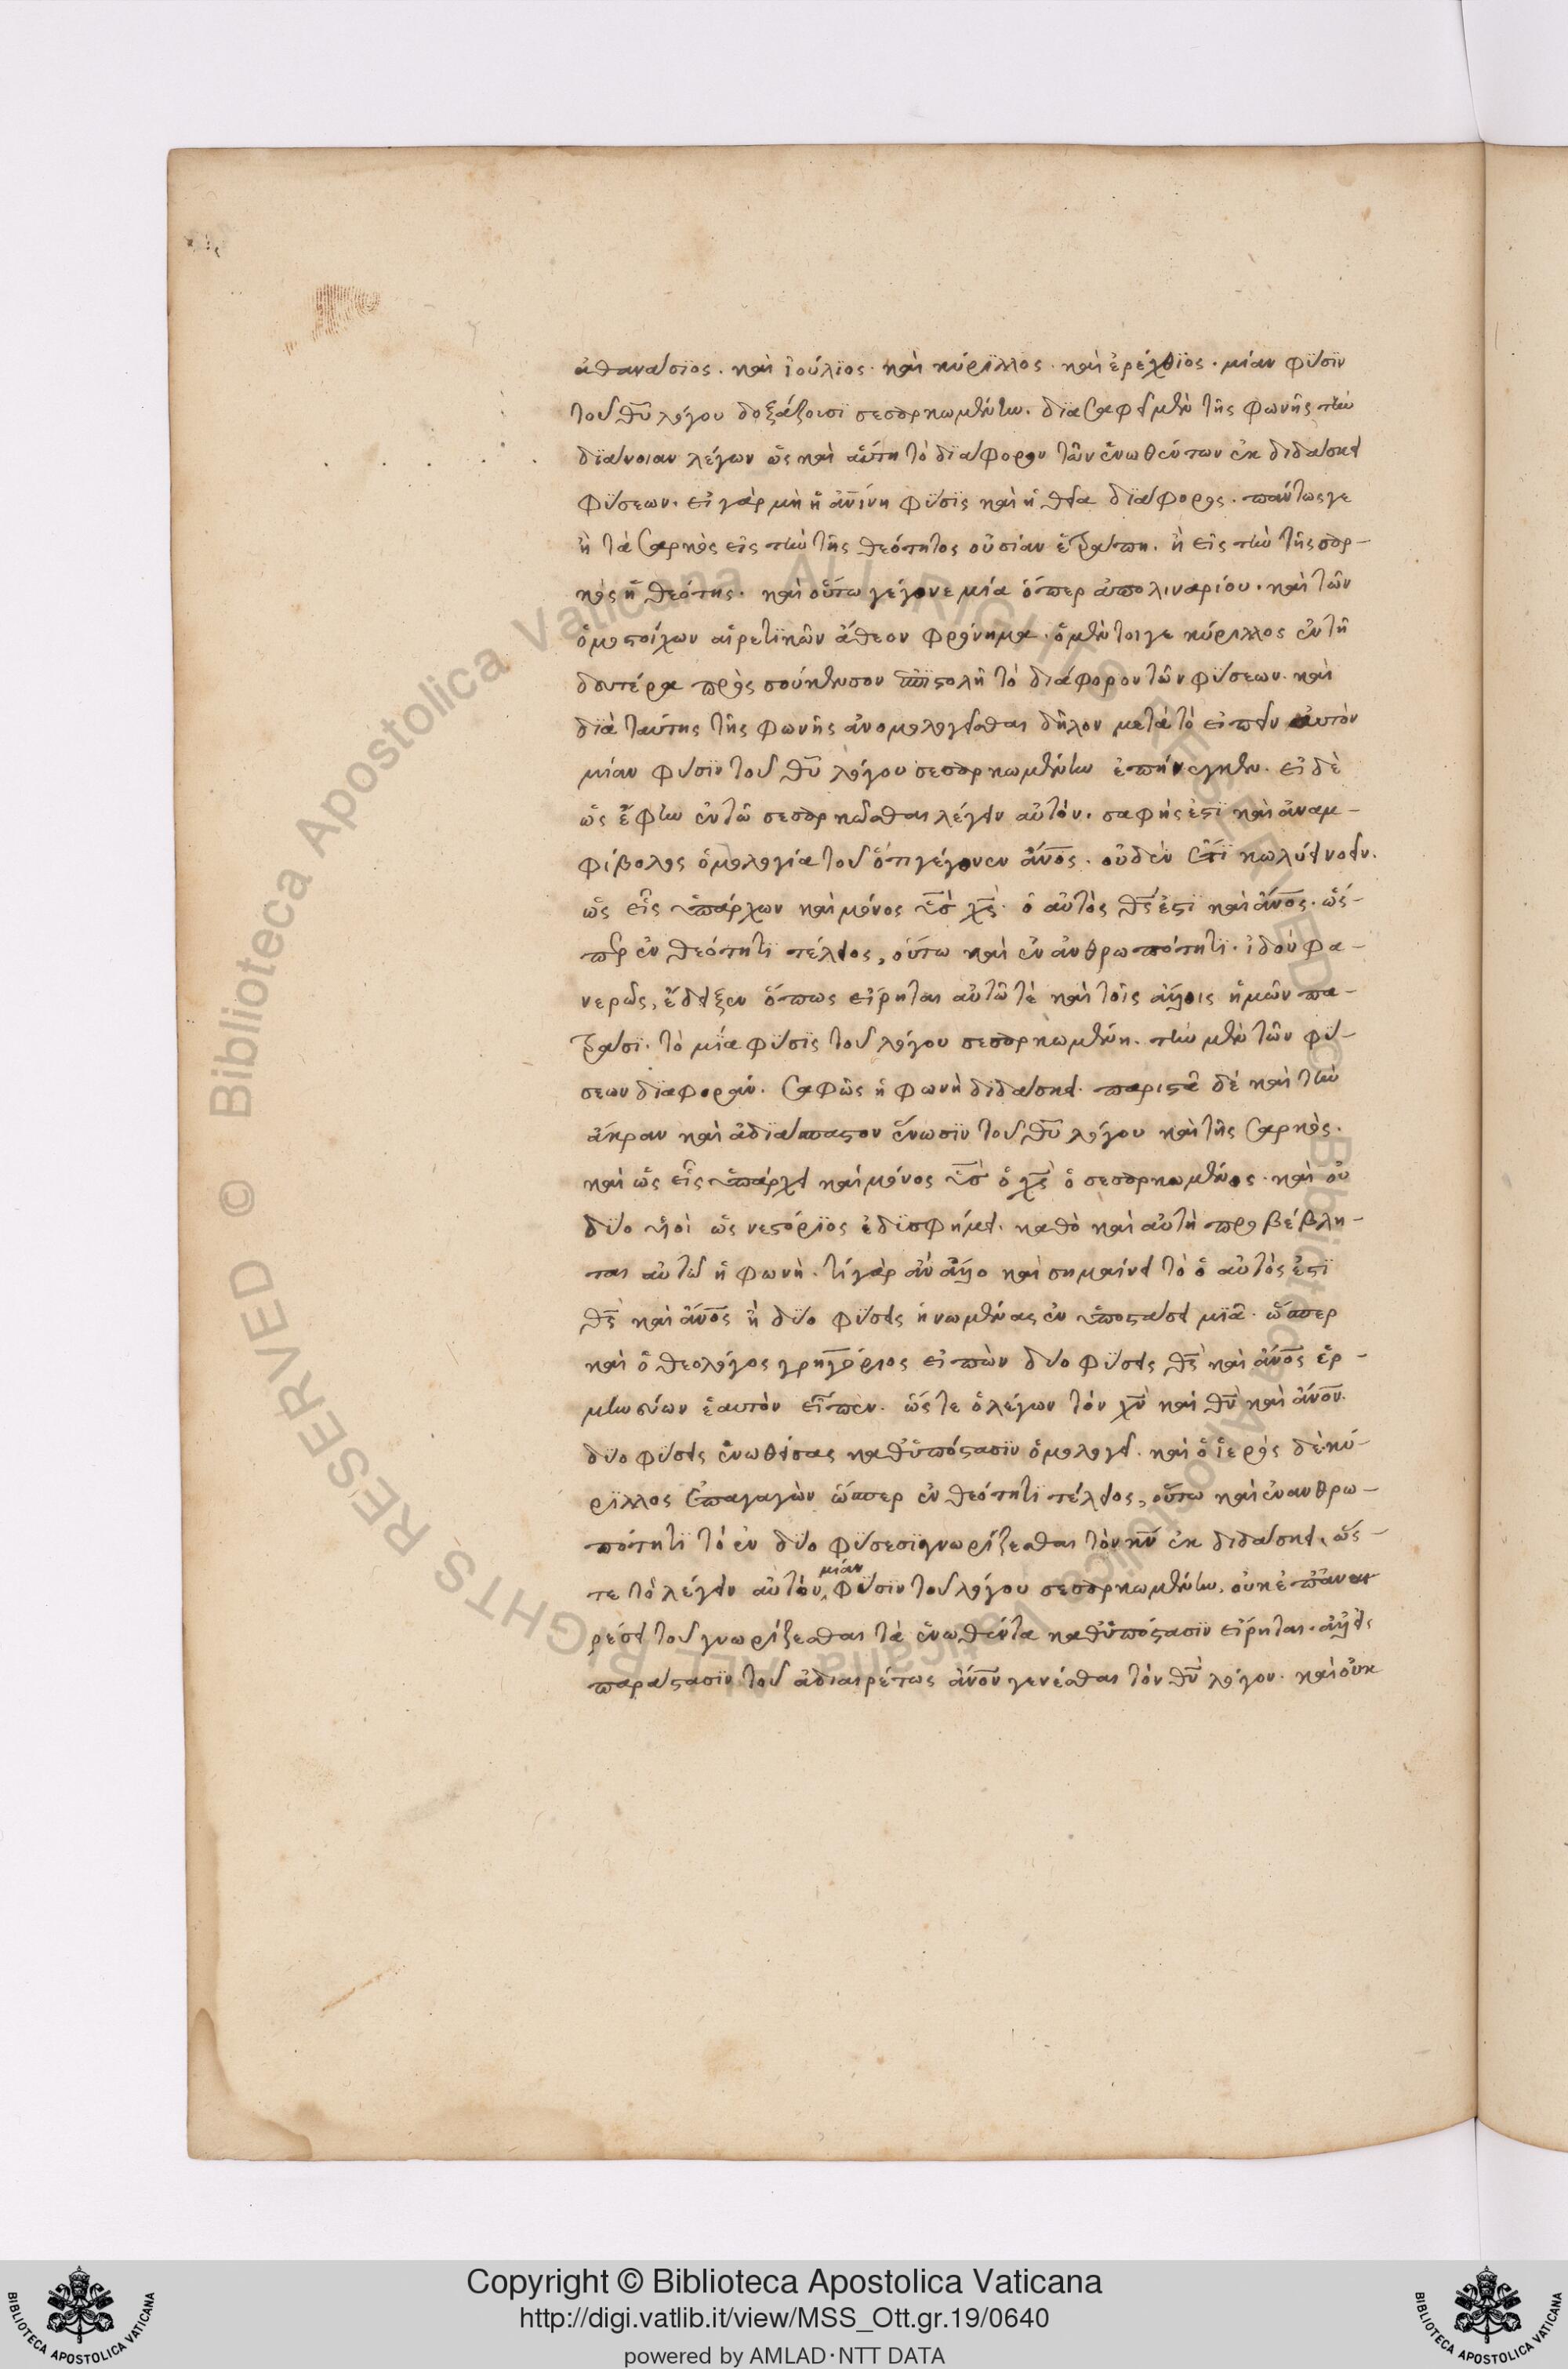 ἀθανάσϊος. καὶ ἰούλϊος. καὶ κύρϊλλος. καὶ ἐρέχθϊος. μίαν φύσϊν
τοῦ θῡ λόγου δοξάζουσϊ σεσαρκωμένην. δϊασαφεῖ μὲν τῆς φωνῆς τὴν
δϊάνοιαν λέγων ὡς καὶ αὕτη τὸ δϊάφορον τῶν ἑνωθέντων ἐκδιδάσκει
φύσεων. εἰ γὰρ μὴ ἡ ἀν̅ίνη φύσϊς καὶ ἡ θεία δϊάφορος. πάντως γε
ἢ τὰ σαρκὸς εἰς τὴν τῆς θεότητος οὐσίαν ἐτράπη. ἢ εἰς τὴν τῆς σαρ-
κὸς ἡ θεότης. καὶ οὕτω γέγονε μία ὅπερ ἀπολιναρίου. καὶ τῶν
ὁμοστοίχων αἱρετϊκῶν ἄθεον φρόνημα. ὁ μέν τοι γε κύριλλος ἐν τῆ
δευτέρα πρὸς σούκενσον ἐπϊστολῆ τὸ διάφορον τῶν φύσεων. καὶ
δϊὰ ταύτης τῆς φωνῆς ἀνομολογεῖσθαι δῆλον μετὰ τὸ εἰπεῖν αὐτὸν
μίαν φύσϊν τοῦ θῡ λόγου σεσαρκωμένην ἐπήνεγκεν. εἰ δὲ
ὡς ἔφην ἐν τῶ σεσαρκῶσθαι λέγειν αὐτόν. σαφής ἐστϊ καὶ ἀναμ-
φίβολος ὁμολογία τοῦ ὅτι γέγονεν ἄν̅ος. οὐδὲν ἔτϊ κωλύει νοεῖν.
ὡς εἷς ὑπάρχων καὶ μόνος υἱὸς χ̅ς. ὁ αὐτὸς θ̅ς ἐστϊ καὶ ἄν̅ος. ὥσ-
περ ἐν θεότητϊ τέλειος, οὕτω καὶ ἐν ἀνθρωπότητϊ. ἰδοὺ φα-
νερῶς, ἔδειξεν ὅπως εἴρηται αὐτῶ τὲ καὶ τοῖς ἁγίοις ἡμῶν πα-
τράσϊ. τὸ μία φύσϊς τοῦ λόγου σεσαρκωμένη. τὴν μὲν τῶν φύ-
σεων δϊαφοράν. σαφῶς ἡ φωνὴ δϊδάσκει. παριστᾶ δὲ καὶ τὴν
ἄκραν καὶ ἀδϊάσπαστον ἕνωσϊν τοῦ θῡ λόγου καὶ τῆς σαρκὸς.
καὶ ὡς εἷς ὑπάρχει καὶ μόνος υἱὸς ὁ χ̅ς ὁ σεσαρκωμένος. καὶ οὐ
δύο υἱοὶ ὡς νεστόρϊος ἐδϊσφήμει. καθὸ καὶ αὐτὴ προβέβλη-
ται αὐτῶ ἡ φωνὴ. τί γὰρ ἂν ἄλλο καὶ σημαίνει τὸ ὁ αὐτός ἐστϊ
θ̅ς καὶ ἄν̅ος ἢ δύο φύσεις ἡνωμένας ἐν ὑποστάσει μϊᾶ. ὥσπερ
καὶ ὁ θεολόγος γρηγόριος εἰπὼν δύο φύσεις θ̅ς καὶ ἄν̅ος ἑρ-
μηνεύων ἑαυτὸν εἶπεν. ὥστε ὁ λέγων τὸν χ̅ν καὶ θ̅ν καὶ ἄν̅ον.
δύο φύσεις ἑνωθείσας καθ᾽ ὑπόστασϊν ὁμολογεῖ. καὶ ὁ ἱερὸς δὲ κύ-
ρϊλλος ἐπαγαγὼν ὥσπερ ἐν θεότητϊ τέλειος, οὕτω καὶ ἐν ἀνθρω-
πότητϊ τὸ ἐν δύο φύσεσϊ γνωρίζεσθαι τὸν κ̅ν ἐκδιδάσκει. ὥσ-
τε τὸ λέγειν αὐτὸν, μίαν φύσϊν τοῦ λόγου σεσαρκωμένην. οὐκ ἐπ᾽ ἀναι
ρέσει τοῦ γνωρίζεσθαι τὰ ἑνωθέντα καθ᾽ ὑπόστασϊν εἴρηται. ἀλλ᾽ εἰς
παράστασϊν τοῦ ἀδιαιρέτως ἄν̅ον γενέσθαι τὸν θ̅ν λόγον. καὶ οὐκ
Copyright © Biblioteca Apostolica Vaticana
http://digi.vatlib.it/view/MSS_Ott.gr.19/0640
powered by AMLAD·NTT DATA